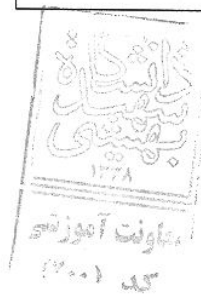 دانشگاه
شهید
بهشتی
۱۳۳۸
معاونت آموزشی
کد ۱۲۰۰۱